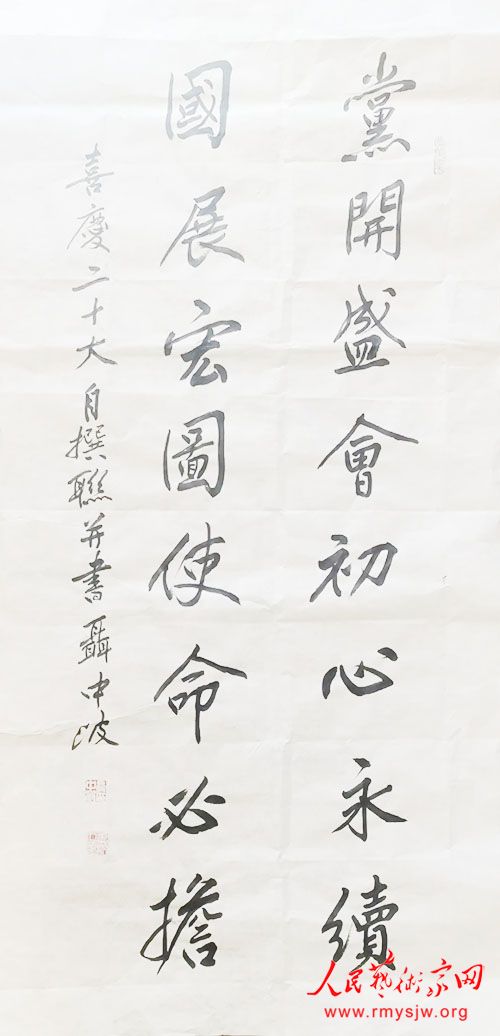 黨開盛會初心永續
國展宏圖使命必擔
喜慶二十大自撰聯并書聶中波
人民藝術家网
www.rmysjw.org